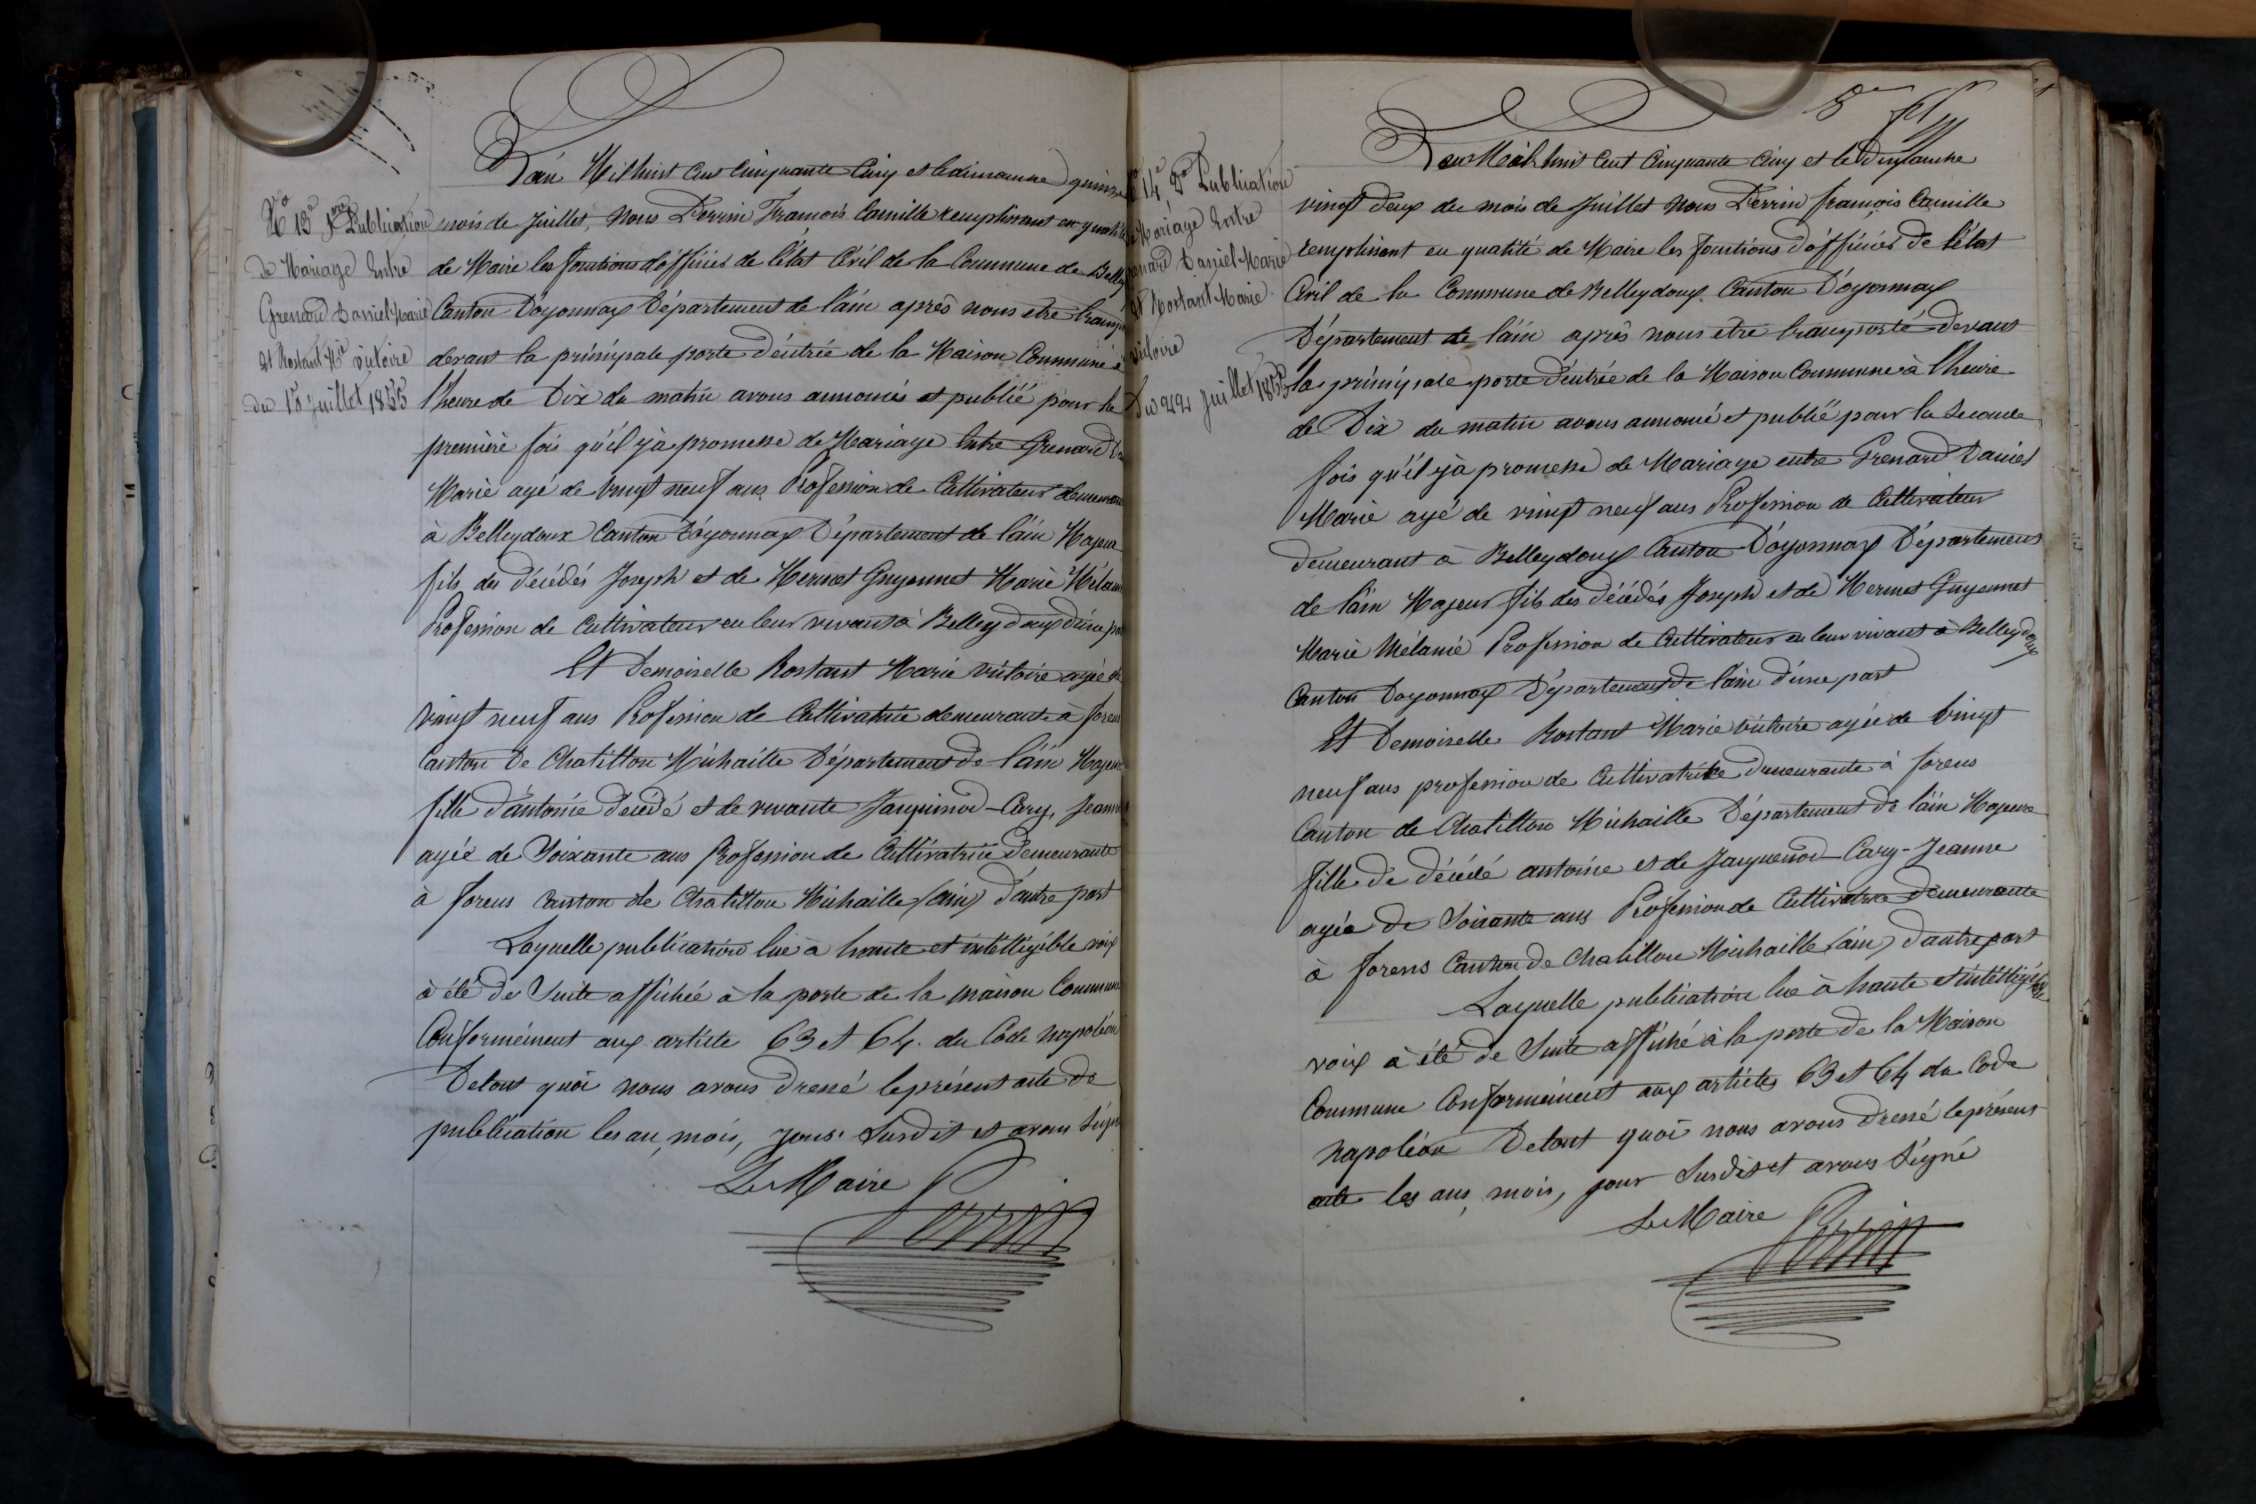 N° 13e 1ere Publication
de Mariage Entre
Grenard Daniel Marie
et Rostant Mie victoire
du 15 juillet 1855
L'an Mil huit Cent Cinquante Cinq et le dimanche quinze
mois de Juillet, Nous Perrin François Camille remplissant en qualité
de Maire les fonctions d'officier de l'état Civil de la Commune de Belley
Canton D'oyonnax Département de l'ain après nous etre transpor
devant la principale porte d'entrée de la Maison Commune à
l'heure de Dix du matin avons annoncés et publié pour la
première fois qu'il y à promesse de Mariage Entre Grenard Da
Marie agé de vingt neuf ans Profession de Cultivateur demeurant
à Belleydoux Canton D'oyonnax Département de l'ain Majeur
fils des décédés Joseph et de Mermet Guyennet Marie Mélanie
Profession de Cultivateur en leur vivant à Belleydoux d'une part
Et Demoiselle Rostant Marie victoire agée de
vingt neuf ans Profession de Cultivatrice demeurante à forens
Canton De Chatillon Michaille Département de l'ain Majeure
fille d'antoine décédé et de vivante Janquinod-Cary, Jeanne
agée de Soixante ans Profession de Cultivatrice Demeurante
à forens Canton de Chatillon Michaille (ain) d'autre part
Laquelle publication lue à haute et intelligible voix
à été de Suite affichée à la porte de la maison Commune
Conformément aux article 63 et 64. du Code napoléon
De tout quoi nous avons Dressé le présent acte de
publication les an, mois, jour susdit et avons Signé
Le Maire Perrin
8e
14e 2e Publication
de Mariage Entre
Grenard Daniel-Marie
et Rostant Marie
victoire
Du 22 Juillet 1855
L'an Mil huit Cent Cinquante Cinq et le Dimanche
vingt deux du mois de Juillet Nous Perrin françois Camille
remplissant en qualité de Maire les fonctions d'officier de l'état
Civil de la Commune de Belleydoux Canton D'oyonnax
Département de l'ain après nous etre transporté devant
la principale porte d'entrée de la Maison Commune à l'heure
de Dix du matin avons annoncé et publié pour la Seconde
fois qu'il y à promesse de Mariage entre Grenard Daniel
Marie agé de vingt neuf ans Profession de Cultivateur
demeurant à Belleydoux Canton D'oyonnax Département
de l'ain Majeur fils des décédés Joseph et de Mermet Guyennet
Marie Mélanie Profession de Cultivateur en leur vivant à Belleydoux
Canton Doyonnax Département de l'ain d'une part
Et Demoiselle Rostant Marie victoire agée de vingt
neuf ans profession de Cultivatrice demeurante à forens
Canton de Chatillon Michaille Département de l'ain Majeure
fille de décédé antoine et de Janquinod-Cary-Jeanne
agée de Soixante ans Profession de Cultivatrice Demeurante
à forens Canton de Chatillon Michaille (ain) d'autre part
Laquelle publication lue à haute et intelligible
voix à été de Suite affiché à la porte de la Maison
Commune Conformément aux articles 63 et 64 du Code
Napoléon De tout quoi nous avons Dressé le présent
acte les ans, mois, jour susdit et avons Signé
Le Maire Perrin